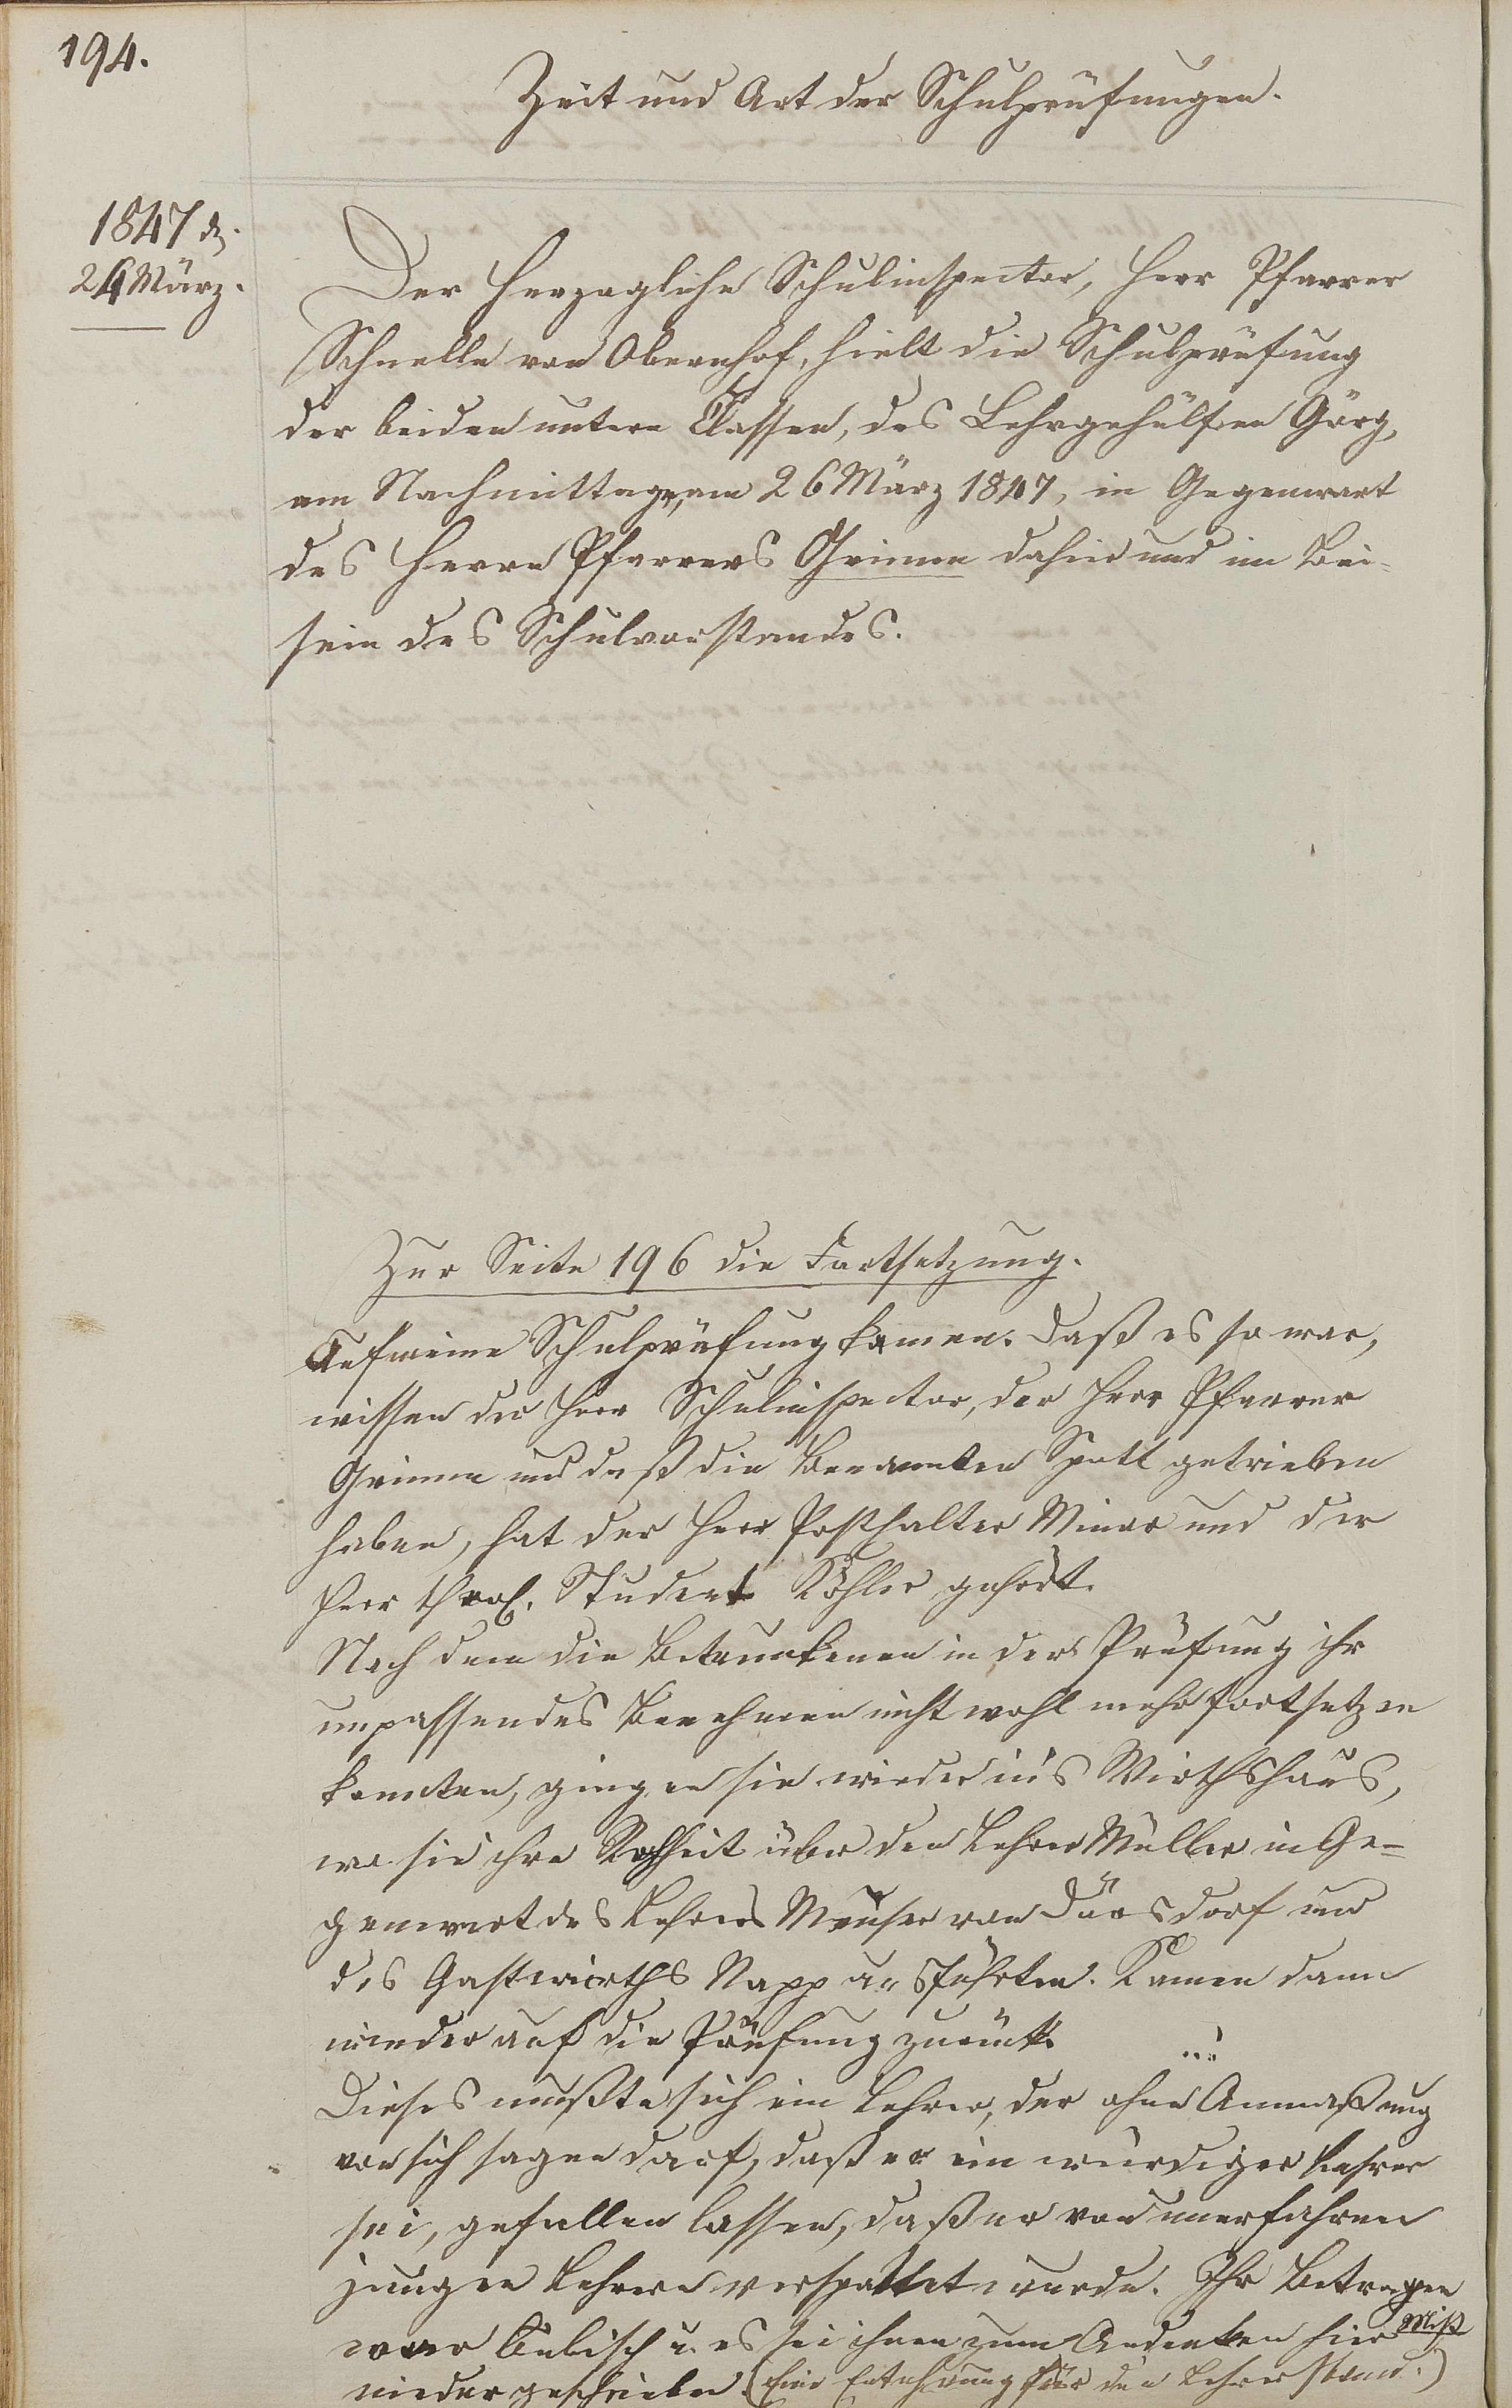 194.
Zeit und Art der Schulprüfungen.
1847 d.
26 März.
Der Herzogliche Schulinspector, Herr Pfarrer
Schnelle von Obernhof, hielt die Schulprüfung
der beiden untern Classen, des Lehrgehülfen Görg,
am Nachmittage, am 26 März 1847, in Gegenwart
des Herrn Pfarrers Grimm dahier und im Bei-
sein des Schulvorstandes.
Zur Seite 196 die Fortsetzung.
Auf meine Schulprüfung kamen. Daß es so war,
wissen der Herr Schulinspector, der Herr Pfarrer
Grimm und daß die Benannten Spott getrieben
haben, hat der Herr Posthalter Minor und der
Herr theol. Student Köhler gehört.
Nach dem die Betrunkenen in der Prüfung ihr
unpassendes Benehmen nicht wohl mehr fortsetzen
konnten, gingen sie wieder in's Wirthshaus,
wo sie ihre Rohheit über den Lehrer Müller in Ge-
genwart des Lehrers Meuser von Dörsdorf und
des Gastwirths Napp ausführten. Kamen dann
wieder auf die Prüfung zurück.
Dieses mußte sich ein Lehrer, der ohne Anmaßung
von sich sagen darf, daß er ein würdiger Lehrer
sei, gefallen lassen, daß er von unerfahrnen
jungen Lehrern verspottet wurde. Ihr Betragen
war bübisch u. es sei ihnen zum Andenken hier
nieder geschrieben. (Eine Entehrung für den Lehrerstand.)